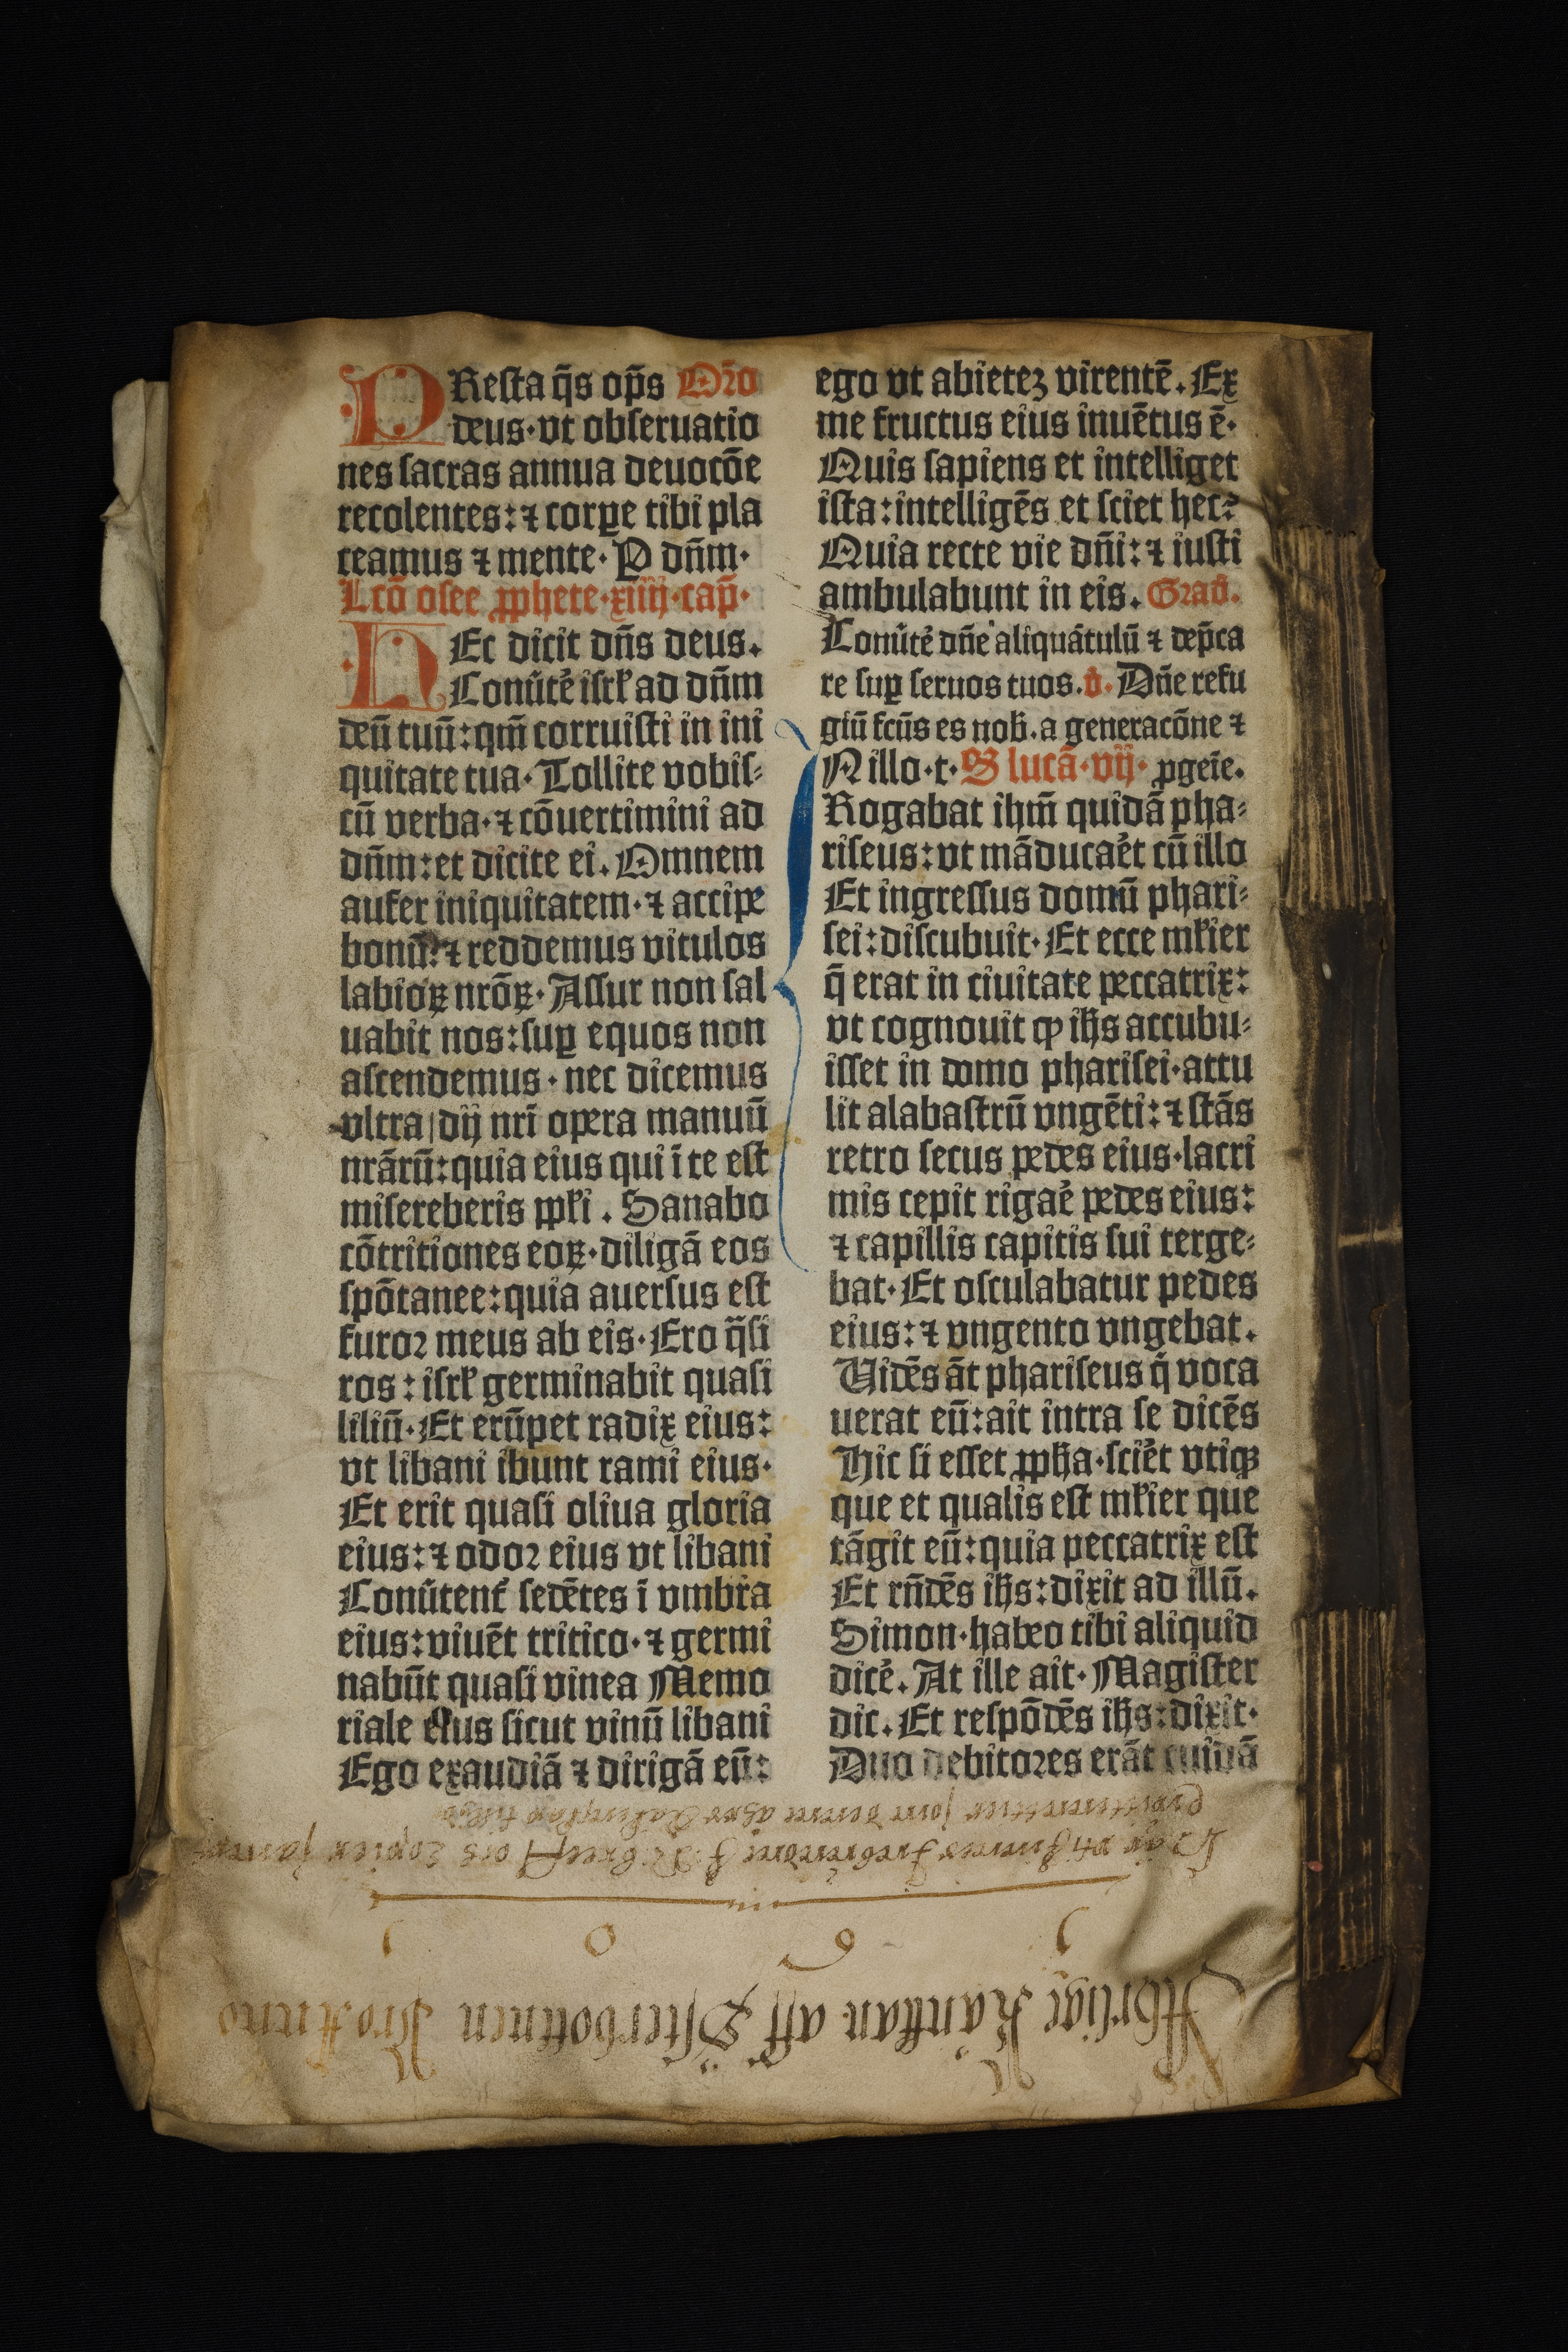 PResta q̄s op̄s Oꝛ̄o
deus·vt obſeruatio
nes ſacras annua deuocōe
recolentes:⁊ corꝑe tibi pla
ceamus ⁊ mente· P dn̄m·
Lcō oſee ꝓphete·xiiij·cap̄·
HEc dicit dn̄s deus.
Conu̇te̓ iſrꝉ ad dn̄m
deū tuū:qm̄ corruiſti in ini
quitate tua· Tollite vobiſ⸗
cū verba·⁊ cōuertimini ad
dn̄m:et dicite ei. Omnem
aufer iniquitatem·⁊ accipe
bonū:⁊ reddemus vitulos
labioꝝ nrōꝝ· Aſſur non ſal
uabit nos:ſuꝑ equos non
aſcendemus·nec dicemus
vltra|dij nrī opera manuū
nrārū:quia eius qui ī te eſt
miſereberis ppꝉi. Sanabo
cōtritiones eoꝝ·diligā eos
ſpōtanee:quia auerſus eſt
furoꝛ meus ab eis· Ero q̄ſi
ros:iſrꝉ germinabit quaſi
liliū· Et erūpet radix eius:
vt libani ibunt rami eius·
Et erit quaſi oliua gloria
eius:⁊ odoꝛ eius vt libani
Conu̇tent̓ ſedētes ī vmbra
eius:viuēt tritico·⁊ germi
nabūt quaſi vinea Memo
riale eius ſicut vinū libani
Ego exaudiā ⁊ dirigā eū:
ego vt abieteʒ virentē. Ex
me fructus eius inuētus ē·
Quis ſapiens et intelliget
iſta:intelligēs et ſciet hec?
Quia recte vie dn̄i:⁊ iuſti
ambulabunt in eis. Grad̄.
Conu̇te̓ dn̄e aliquātulū ⁊ dep̄ca
re ſuꝑ ſeruos tuos. v̓. Dn̄e refu
giū fcūs es nob̄. a generacōne ⁊
N illo·t· S lucā·vij· ꝓgeīe.
Rogabat ihm̄ quidā pha⸗
riſeus:vt māducae̓t cū illo
Et ingreſſus domū phari⸗
ſei:diſcubuit· Et ecce mꝉier
q̄ erat in ciuitate peccatrix:
vt cognouit ꝙ ih̄s accubu⸗
iſſet in domo phariſei·attu
lit alabaſtrū vngēti:⁊ ſtās
retro ſecus pedes eius·lacri
mis cepit rigae̓ pedes eius:
⁊ capillis capitis ſui terge⸗
bat· Et oſculabatur pedes
eius:⁊ vngento vngebat.
Vidēs āt phariſeus q̇ voca
uerat eū:ait intra ſe dicēs
Hic ſi eſſet ꝓph̄a·ſcie̓t vtiqꝫ
que et qualis eſt mꝉier que
tāgit eū:quia peccatrix eſt
Et rn̄dēs ih̄s:dixit ad illū.
Simon·habeo tibi aliquid
dice̓. At ille ait· Magiſter
dic. Et reſpōdēs ih̄s:dixit·
Duo debitoꝛes erāt cuidā
Åhrlige Räntan aff Öſterbottnen
1 6 0 1